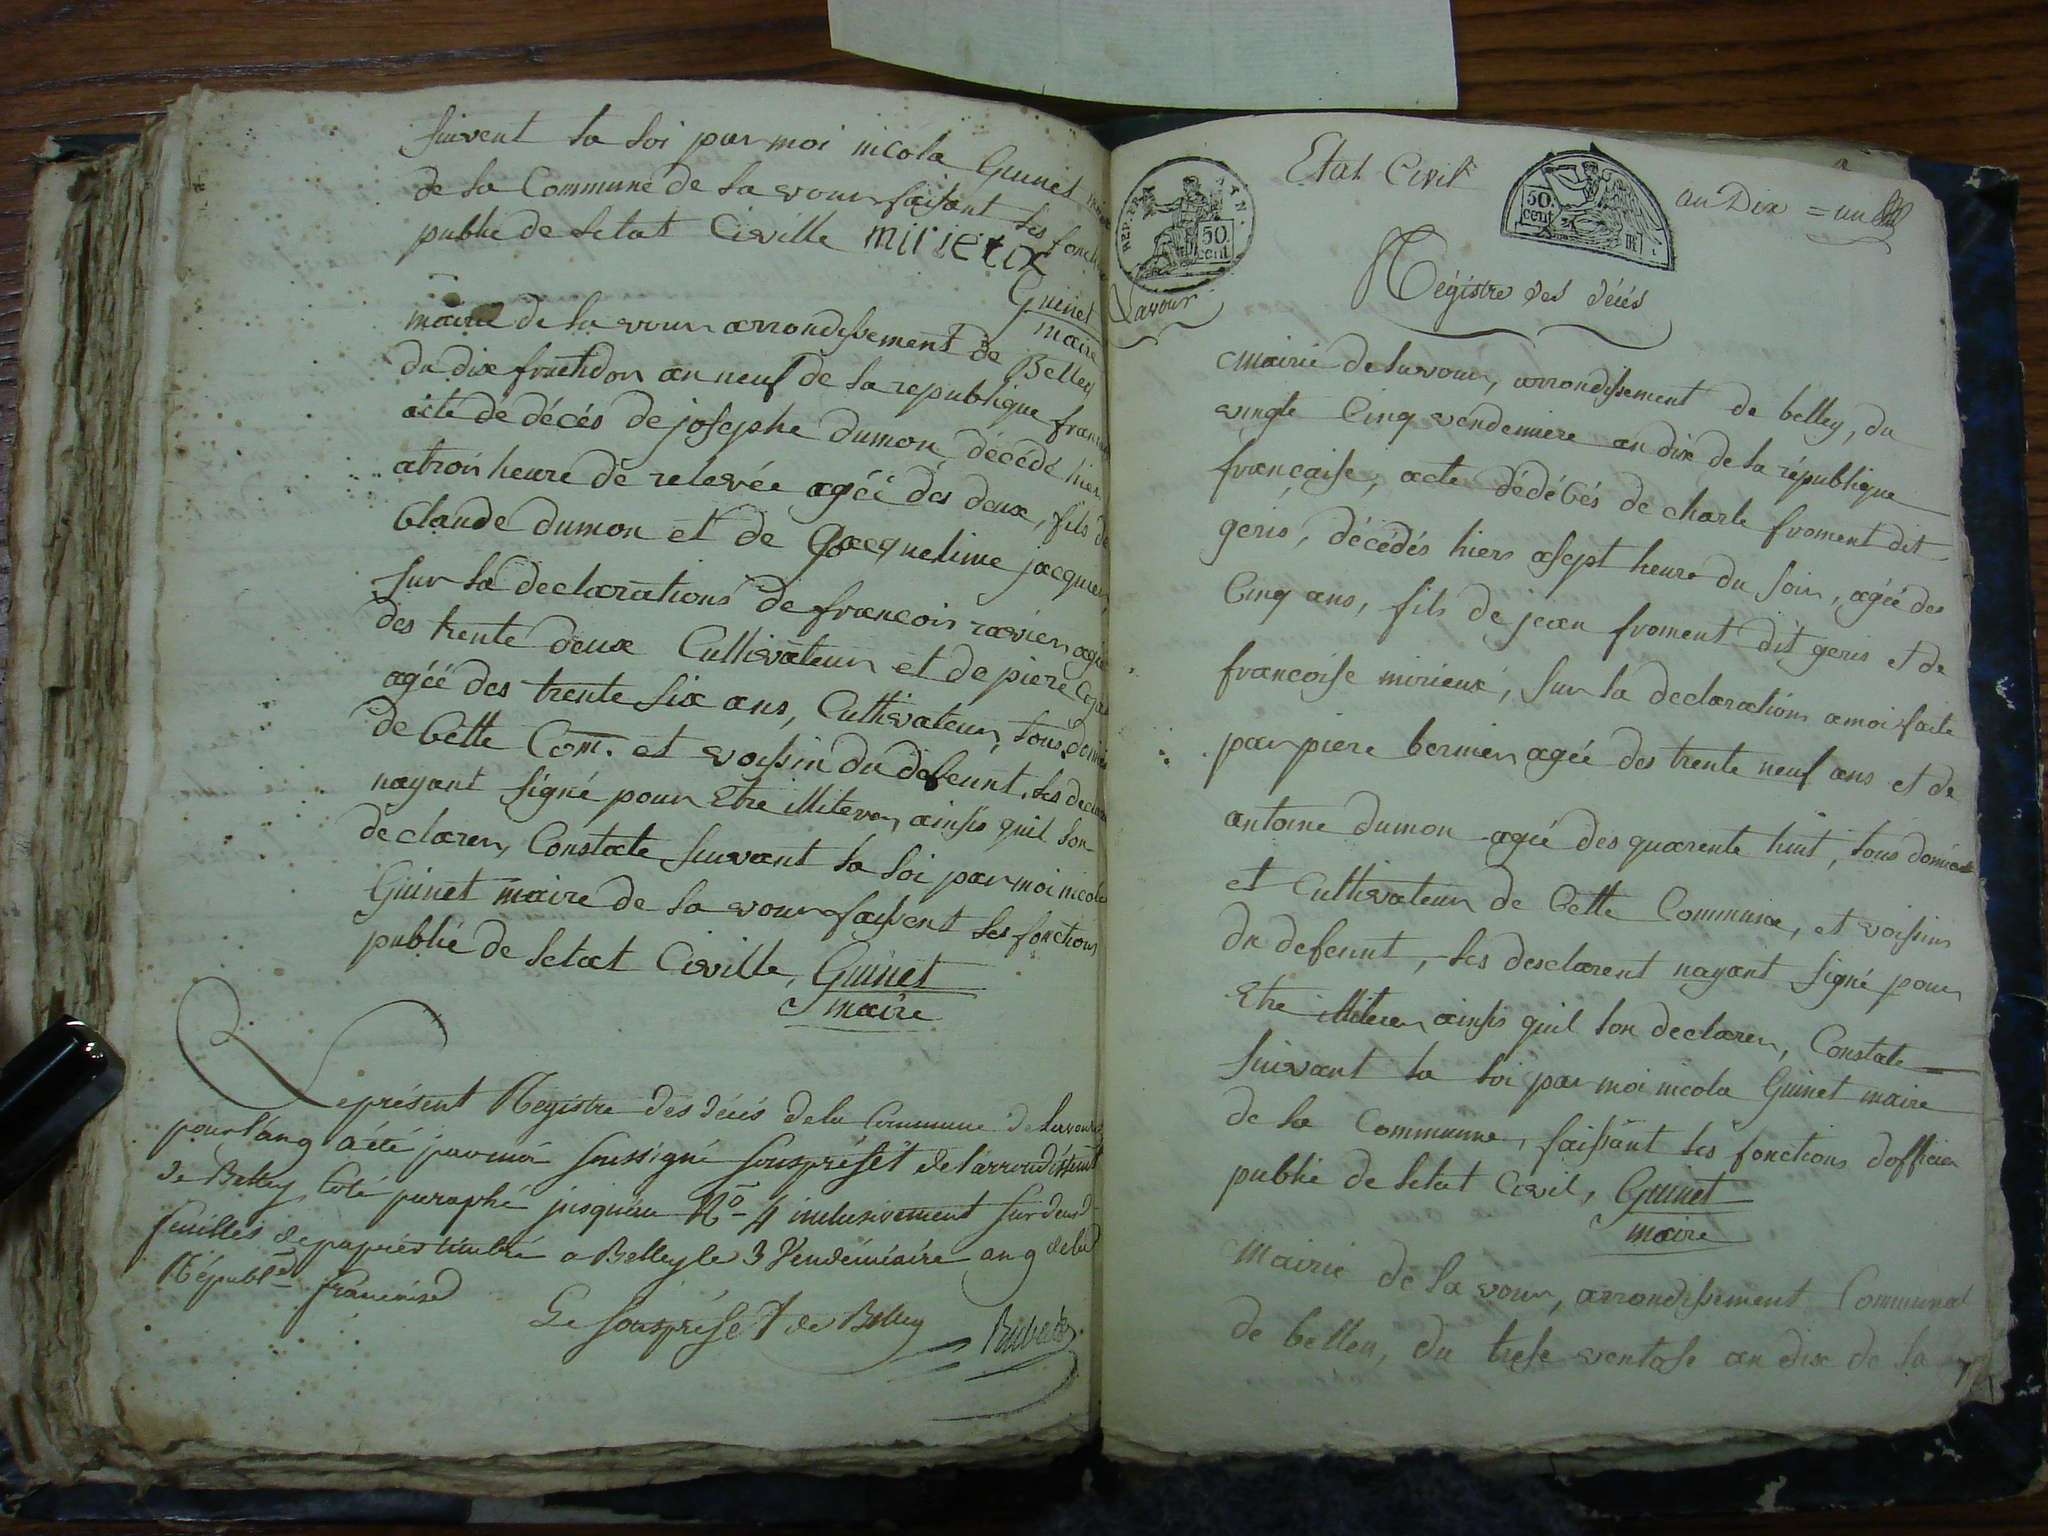 suivent la loi par moi nicola Guinet
de la Commune de la vour faisant les fonc
publié de letat Civille mirieux
Guinet
maire
mairie de la vour arrondissement de Belley
du dix fructidor an neuf de la republique fran
acte de décés de josephe dumon, décédé hier
atroi heure de relevée agéé des deux, fils de
Claude dumon et de Jacqueline jacquier
sur la declarations de francois ravier agé
des trente deux Cultivateur et de piere
agéé des trente six ans, Cultivateur, tous
de Cette Com. et voissin du defeunt, les
nayant signé pour Etre illiteren ainsis quil lon
declaren, Constate suivant la loi par moi nicola
Guinet maire de la vour faissent les fonctions
publié de letat Civille, Guinet
maire
Le présent Régistre des décés de la Commune de Lavour
pour l'an 9 a été par moi soussigné souspréfét de l'arrondissemt
de Belley coté paraphé jusqu'au No 4 inclusivement sur deux
feuilles de papier timbré a Belley le 3 Vendémiaire an 9 de la
Républe française
Le souspréfet de Belley
REP. FRA
50.
cent
Etat Civil
50.
cent
au Dix = un
Lavour
Régistre des décés
mairie de lavour, arrondissement de belley, du
vingte Cinq vendemiere an dix de la république
françaisse, acte dédéCés de charle froment dit
geris, décédés hiers asept heure du soir, agéé des
Cinq ans, fils de jean froment dit geris et de
francoisse mirieux, sur la declarations amoi faite
par piere bernier agéé des trente neuf ans et de
antoine dumon agéé des quarente huit, tous
et Cultivateur de Cette Commune, et voissins
du defeunt, les desclarent nayant signé pour
Etre illiteren ainsis quil lon declaren, Constate
suivant la loi par moi nicola Guinet maire
de la Commune, faissant les fonctions dofficier
publié de letat Civil, Guinet
maire
mairie de la vour, arrondissement Communal
de belley, du trese ventose an dix de la